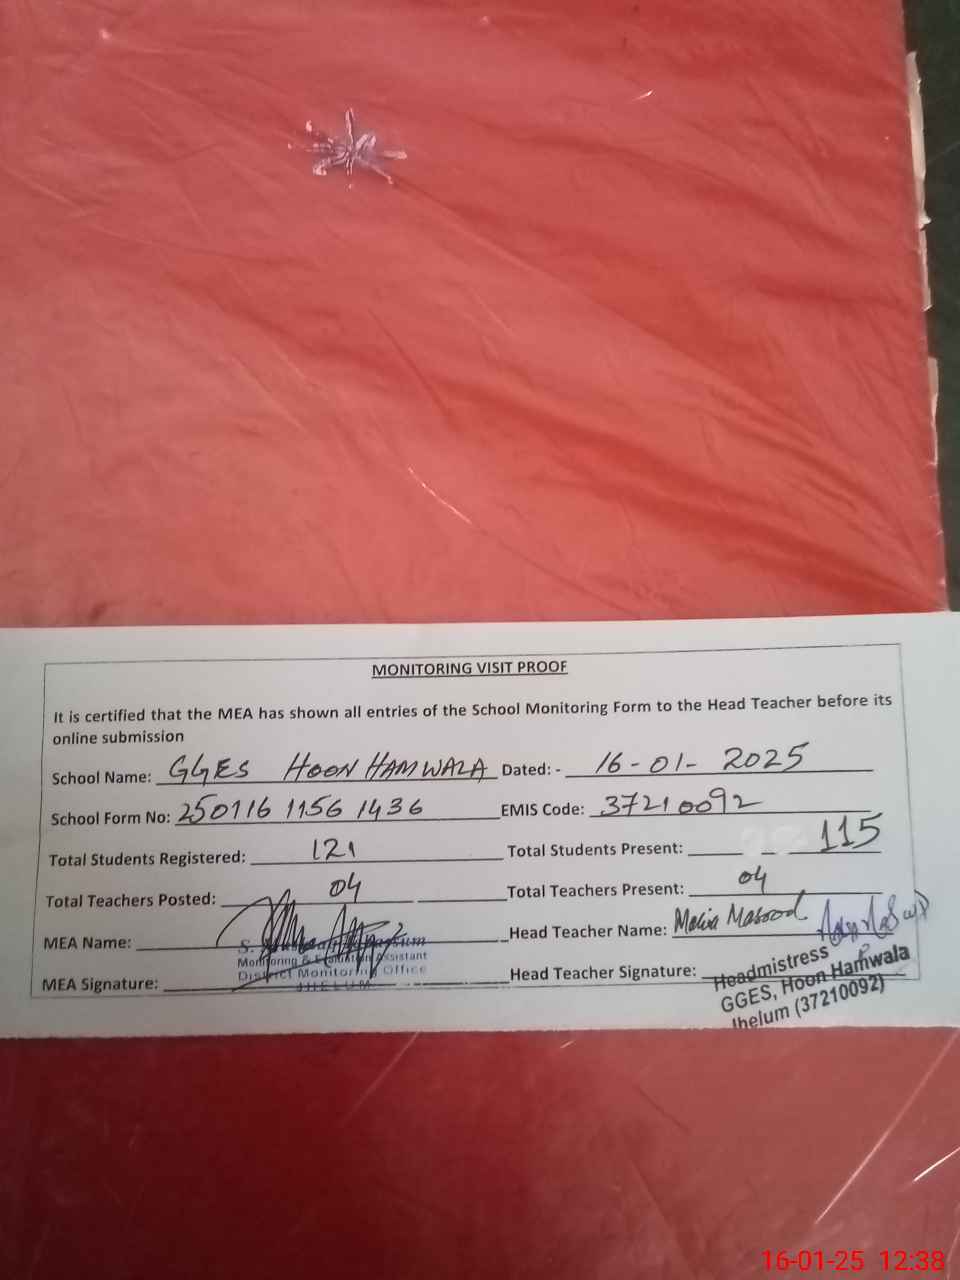 MONITORING VISIT PROOF
It is certified that the MEA has shown all entries of the School Monitoring Form to the Head Teacher before its
online submission
School Name: GGES HOON HAMWALA Dated: - 16-01-2025
School Form No: 250116 1156 1436 EMIS Code: 37210092
Total Students Registered: 121 Total Students Present: 115
Total Teachers Posted: 04 Total Teachers Present: 04
MEA Name: Head Teacher Name: Masood
Monitoring & Evaluation Assistant
District Monitoring Office
JHELUM
MEA Signature: Head Teacher Signature:
Headmistress
GGES, Hoon Hamwala
Jhelum (37210092)
16-01-25 12:38